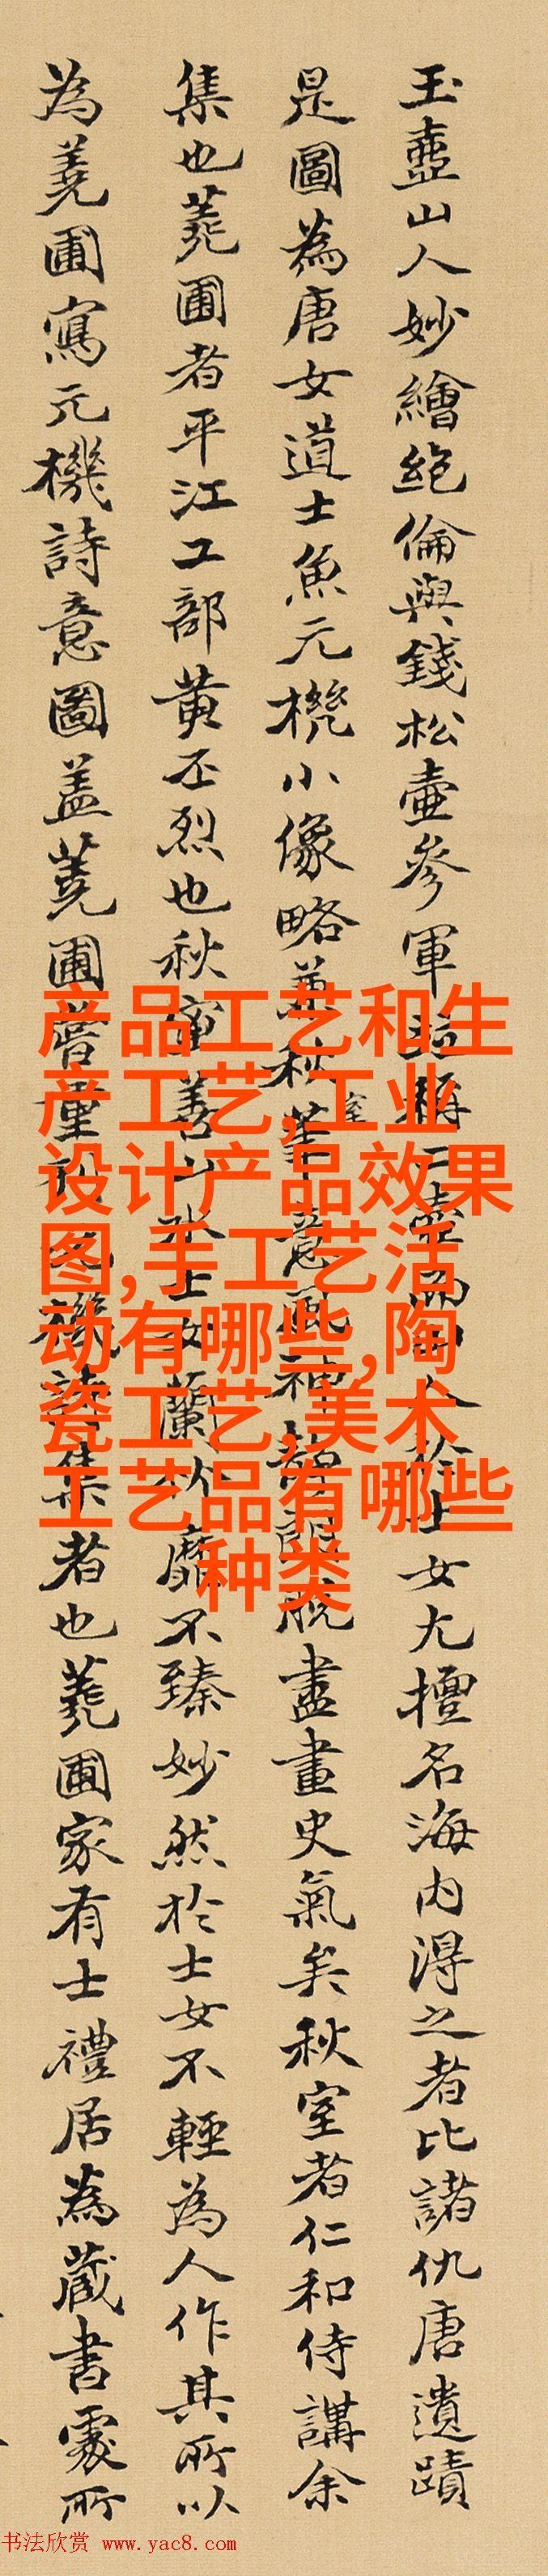 玉壺山人妙繪絶倫與錢松壺參軍並稱二壺而山人於士女尤擅名海内淂之者比諸仇唐遺蹟
是圖為唐女道士魚元機小像略兼秋室筆意神韻脫盡畫史氣矣秋室者仁和侍講余
集也蕘圃者平江工部黃丕烈也秋室善山水士女蘭竹靡不臻妙然於士女不輕為人作其所以
為蕘圃寫元機詩意圖蓋蕘圃嘗重刊元機詩集者也蕘圃家有士禮居為藏書處所
产品工艺和生
产工艺,工业
设计产品效果
图,手工艺活
动有哪些,陶
瓷工艺,美术
工艺品有哪些
种类
书法欣赏 www.yac8.com